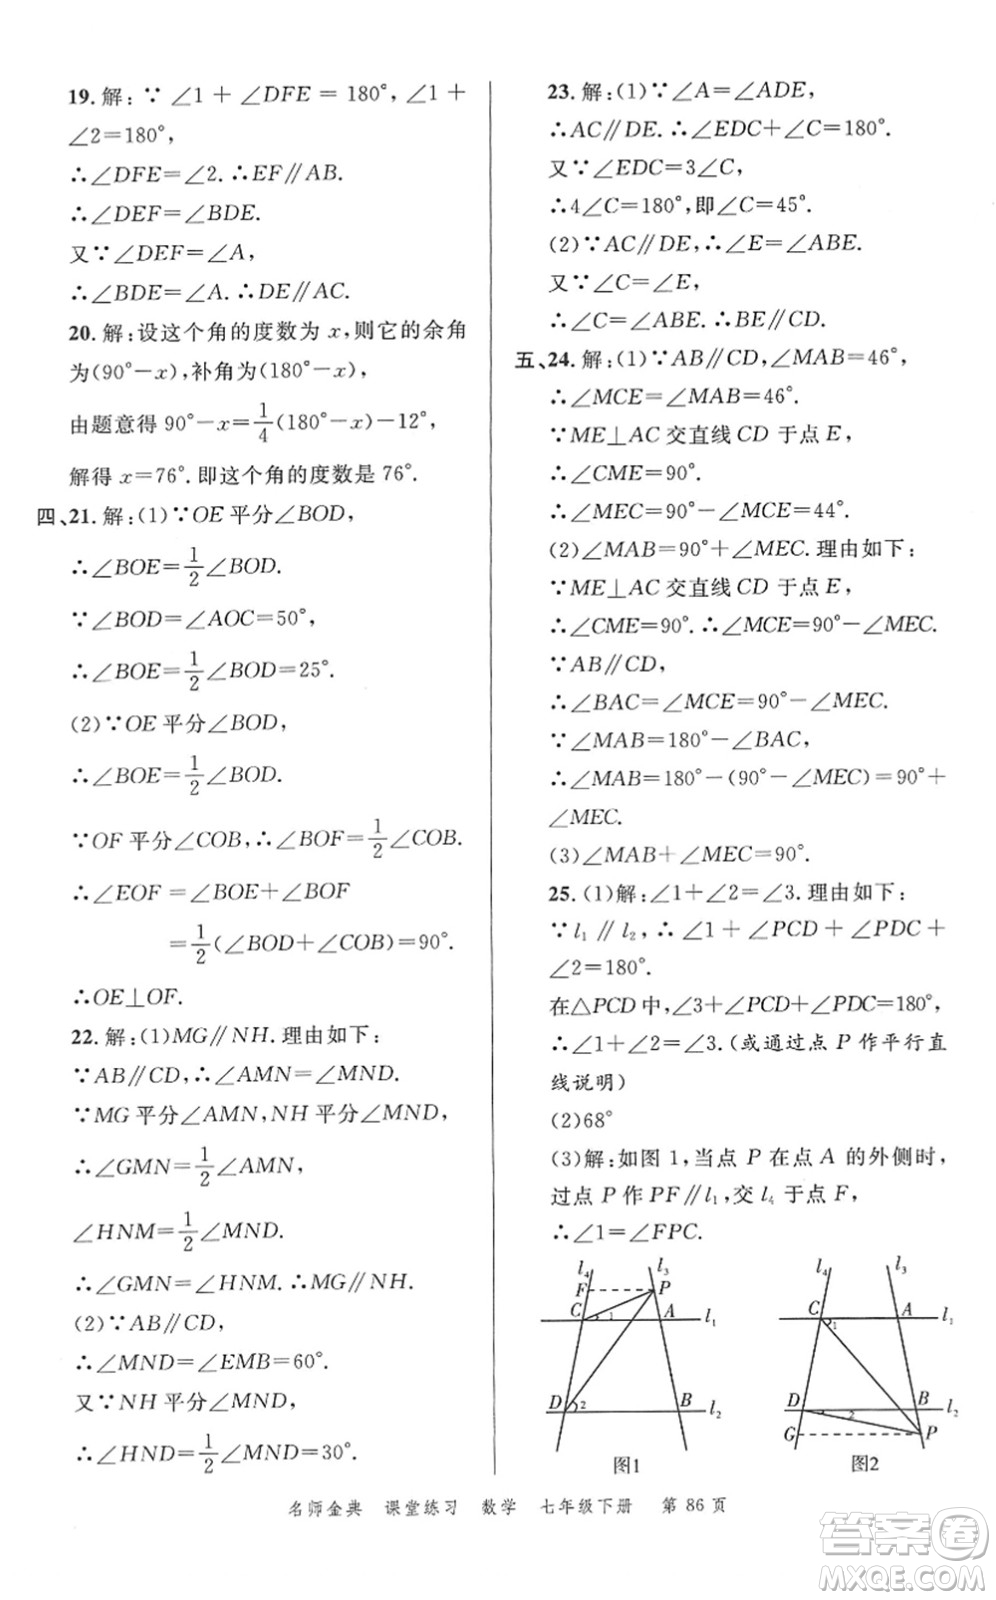 19. 解:∵ ∠1 + ∠DFE = 180°,∠1 +
∠2=180°,
∴∠DFE=∠2.∴EF∥AB.
∴∠DEF=∠BDE.
又∵∠DEF=∠A,
∴∠BDE=∠A.∴DE∥AC.
20. 解:设这个角的度数为 x,则它的余角
为(90°-x),补角为(180°-x),
由题意得 90°-x=1/4(180°-x)-12°,
解得 x=76°.即这个角的度数是 76°.
四、21. 解:(1)∵OE 平分∠BOD,
∴∠BOE=1/2∠BOD.
∵∠BOD=∠AOC=50°,
∴∠BOE=1/2∠BOD=25°.
(2)∵OE 平分∠BOD,
∴∠BOE=1/2∠BOD.
∵OF 平分∠COB,∴∠BOF=1/2∠COB.
∴∠EOF=∠BOE+∠BOF
=1/2(∠BOD+∠COB)=90°.
∴OE⊥OF.
22. 解:(1)MG∥NH.理由如下:
∵AB∥CD,∴∠AMN=∠MND.
∵MG 平分∠AMN,NH 平分∠MND,
∴∠GMN=1/2∠AMN,
∠HNM=1/2∠MND.
∴∠GMN=∠HNM.∴MG∥NH.
(2)∵AB∥CD,
∴∠MND=∠EMB=60°.
又∵NH 平分∠MND,
∴∠HND=1/2∠MND=30°.
23. 解:(1)∵∠A=∠ADE,
∴AC∥DE.∴∠EDC+∠C=180°.
又∵∠EDC=3∠C,
∴4∠C=180°,即∠C=45°.
(2)∵AC∥DE,∴∠E=∠ABE.
又∵∠C=∠E,
∴∠C=∠ABE.∴BE∥CD.
五、24. 解:(1)∵AB∥CD,∠MAB=46°,
∴∠MCE=∠MAB=46°.
∵ME⊥AC 交直线 CD 于点 E,
∴∠CME=90°.
∴∠MEC=90°-∠MCE=44°.
(2)∠MAB=90°+∠MEC.理由如下:
∵ME⊥AC 交直线 CD 于点 E,
∴∠CME=90°.∴∠MCE=90°-∠MEC.
∵AB∥CD,
∴∠BAC=∠MCE=90°-∠MEC.
∵∠MAB=180°-∠BAC,
∴∠MAB=180°-(90°-∠MEC)=90°+
∠MEC.
(3)∠MAB+∠MEC=90°.
25. (1)解:∠1+∠2=∠3.理由如下:
∵l₁ ∥ l₂,∴ ∠1 + ∠PCD + ∠PDC +
∠2=180°.
在△PCD 中,∠3+∠PCD+∠PDC=180°,
∴∠1+∠2=∠3.(或通过点 P 作平行直
线说明)
(2)68°
(3)解:如图 1,当点 P 在点 A 的外侧时,
过点 P 作 PF∥l₁,交 l₄ 于点 F,
∴∠1=∠FPC.
l₄ l₃
F P
C 1 A l₁
D 2 B l₂
图1
l₄ l₃
C 1 A l₁
D 2 B l₂
G P
图2
名师金典 课堂练习 数学 七年级下册 第 86 页
答案卷
MXQE.COM